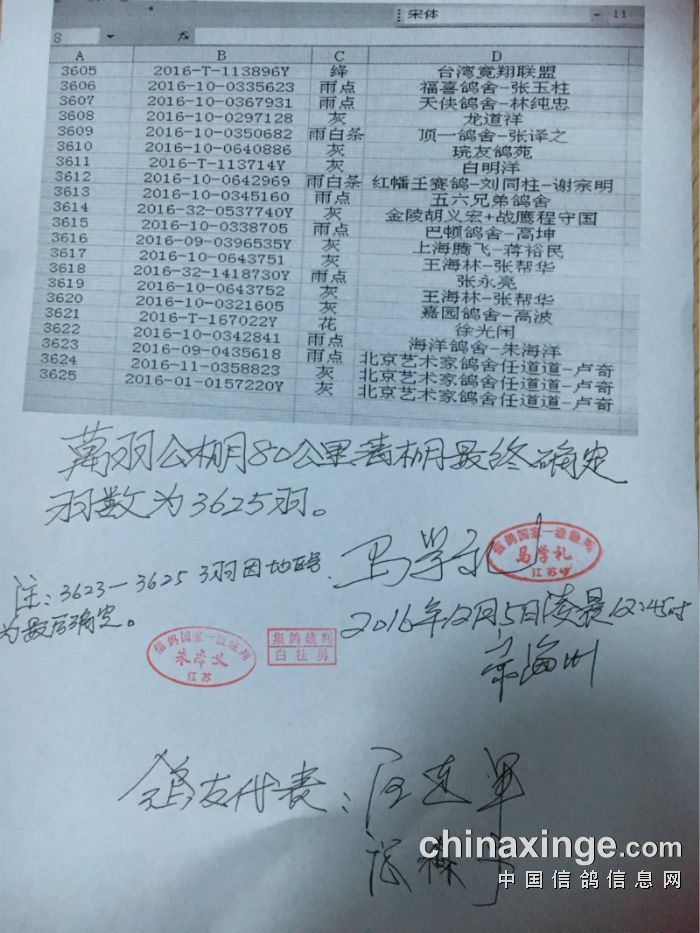 宋体 11
8 fx
A B C D
3605 2016-T-113896Y 绛 台湾竟翔联盟
3606 2016-10-0335623 雨点 福喜鸽舍-张五柱
3607 2016-10-0367931 雨点 天侠鸽舍-林纯忠
3608 2016-10-0297128 灰 龙道祥
3609 2016-10-0350682 雨白条 顶一鸽舍-张译之
3610 2016-10-0640886 灰 琓友鸽苑
3611 2016-T-113714Y 灰 白明洋
3612 2016-10-0642969 雨白条 红幡王赛鸽-刘同柱-谢宗明
3613 2016-10-0345160 雨点 五六兄弟鸽舍
3614 2016-32-0537740Y 灰 金陵胡义宏+战鹰程守国
3615 2016-10-0338705 雨点 巴顿鸽舍-高坤
3616 2016-09-0396535Y 灰 上海腾飞-蒋裕民
3617 2016-10-0643751 灰 王海林-张帮华
3618 2016-32-1418730Y 雨点 张永亮
3619 2016-10-0643752 灰 王海林-张帮华
3620 2016-10-0321605 灰 嘉园鸽舍-高波
3621 2016-T-167022Y 花 徐光闲
3622 2016-10-0342841 雨点 海洋鸽舍-朱海洋
3623 2016-09-0435618 雨点 北京艺术家鸽舍任道道-卢奇
3624 2016-11-0358823 灰 北京艺术家鸽舍任道道-卢奇
3625 2016-01-0157220Y 灰 北京艺术家鸽舍任道道-卢奇
萬羽公棚80公里清棚最终确定
羽数为3625羽。
信鸽国家一级裁判
马学礼
江苏
马学礼
注：3623—3625 3羽因地
为最后确定。
2016年12月5日凌晨12:45时
信鸽国家一级裁判
江苏
集鸽裁判
白桂勇
鸽友代表：
chinaxinge.com
中国信鸽信息网